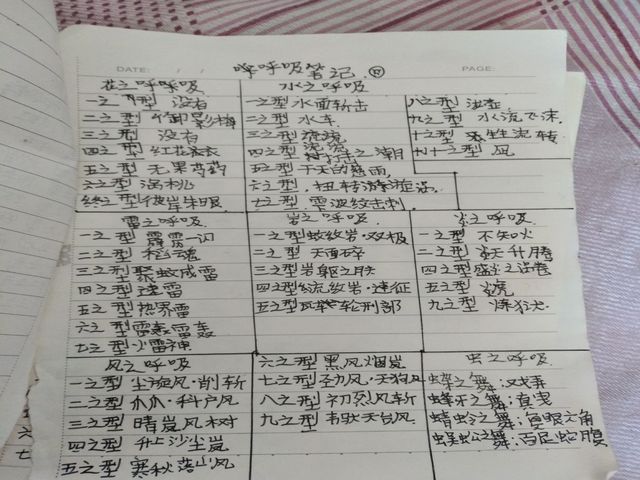 DATE: / /
PAGE:
呼吸笔记
花之呼吸
一之型 没有
二之型 御影梅
三之型 没有
四之型 红花衣
五之型 无果芍药
六之型 涡桃
终之型 彼岸朱眼
水之呼吸
一之型 水面斩击
二之型 水车
三之型
四之型 潮
五之型 干天的慈雨
六之型 扭转
七之型 雫波纹击刺
八之型
九之型 水流飞沫
十之型 生生流转
十一之型 凪
雷之呼吸
一之型 霹雳一闪
二之型 稻魂
三之型 聚蚊成雷
四之型 雷
五之型 热界雷
六之型 雷轰雷轰
七之型 火雷神
岩之呼吸
一之型 蛇纹岩·双极
二之型 天面碎
三之型 岩躯之肤
四之型 流纹岩·速征
五之型 轮刑部
炎之呼吸
一之型 不知火
二之型 升腾
四之型
五之型
九之型 炼狱
风之呼吸
一之型 尘旋风·削斩
二之型 爪爪·科户风
三之型 晴岚风树
四之型 升上沙尘岚
五之型 寒秋落山风
六之型 黑风烟岚
七之型 天狗风
八之型 初烈风斩
九之型 韦驮天台风
虫之呼吸
蝶之舞:戏弄
蜂牙之舞:真曳
蜻蛉之舞:复眼六角
蜈蚣之舞:百足蛇腹